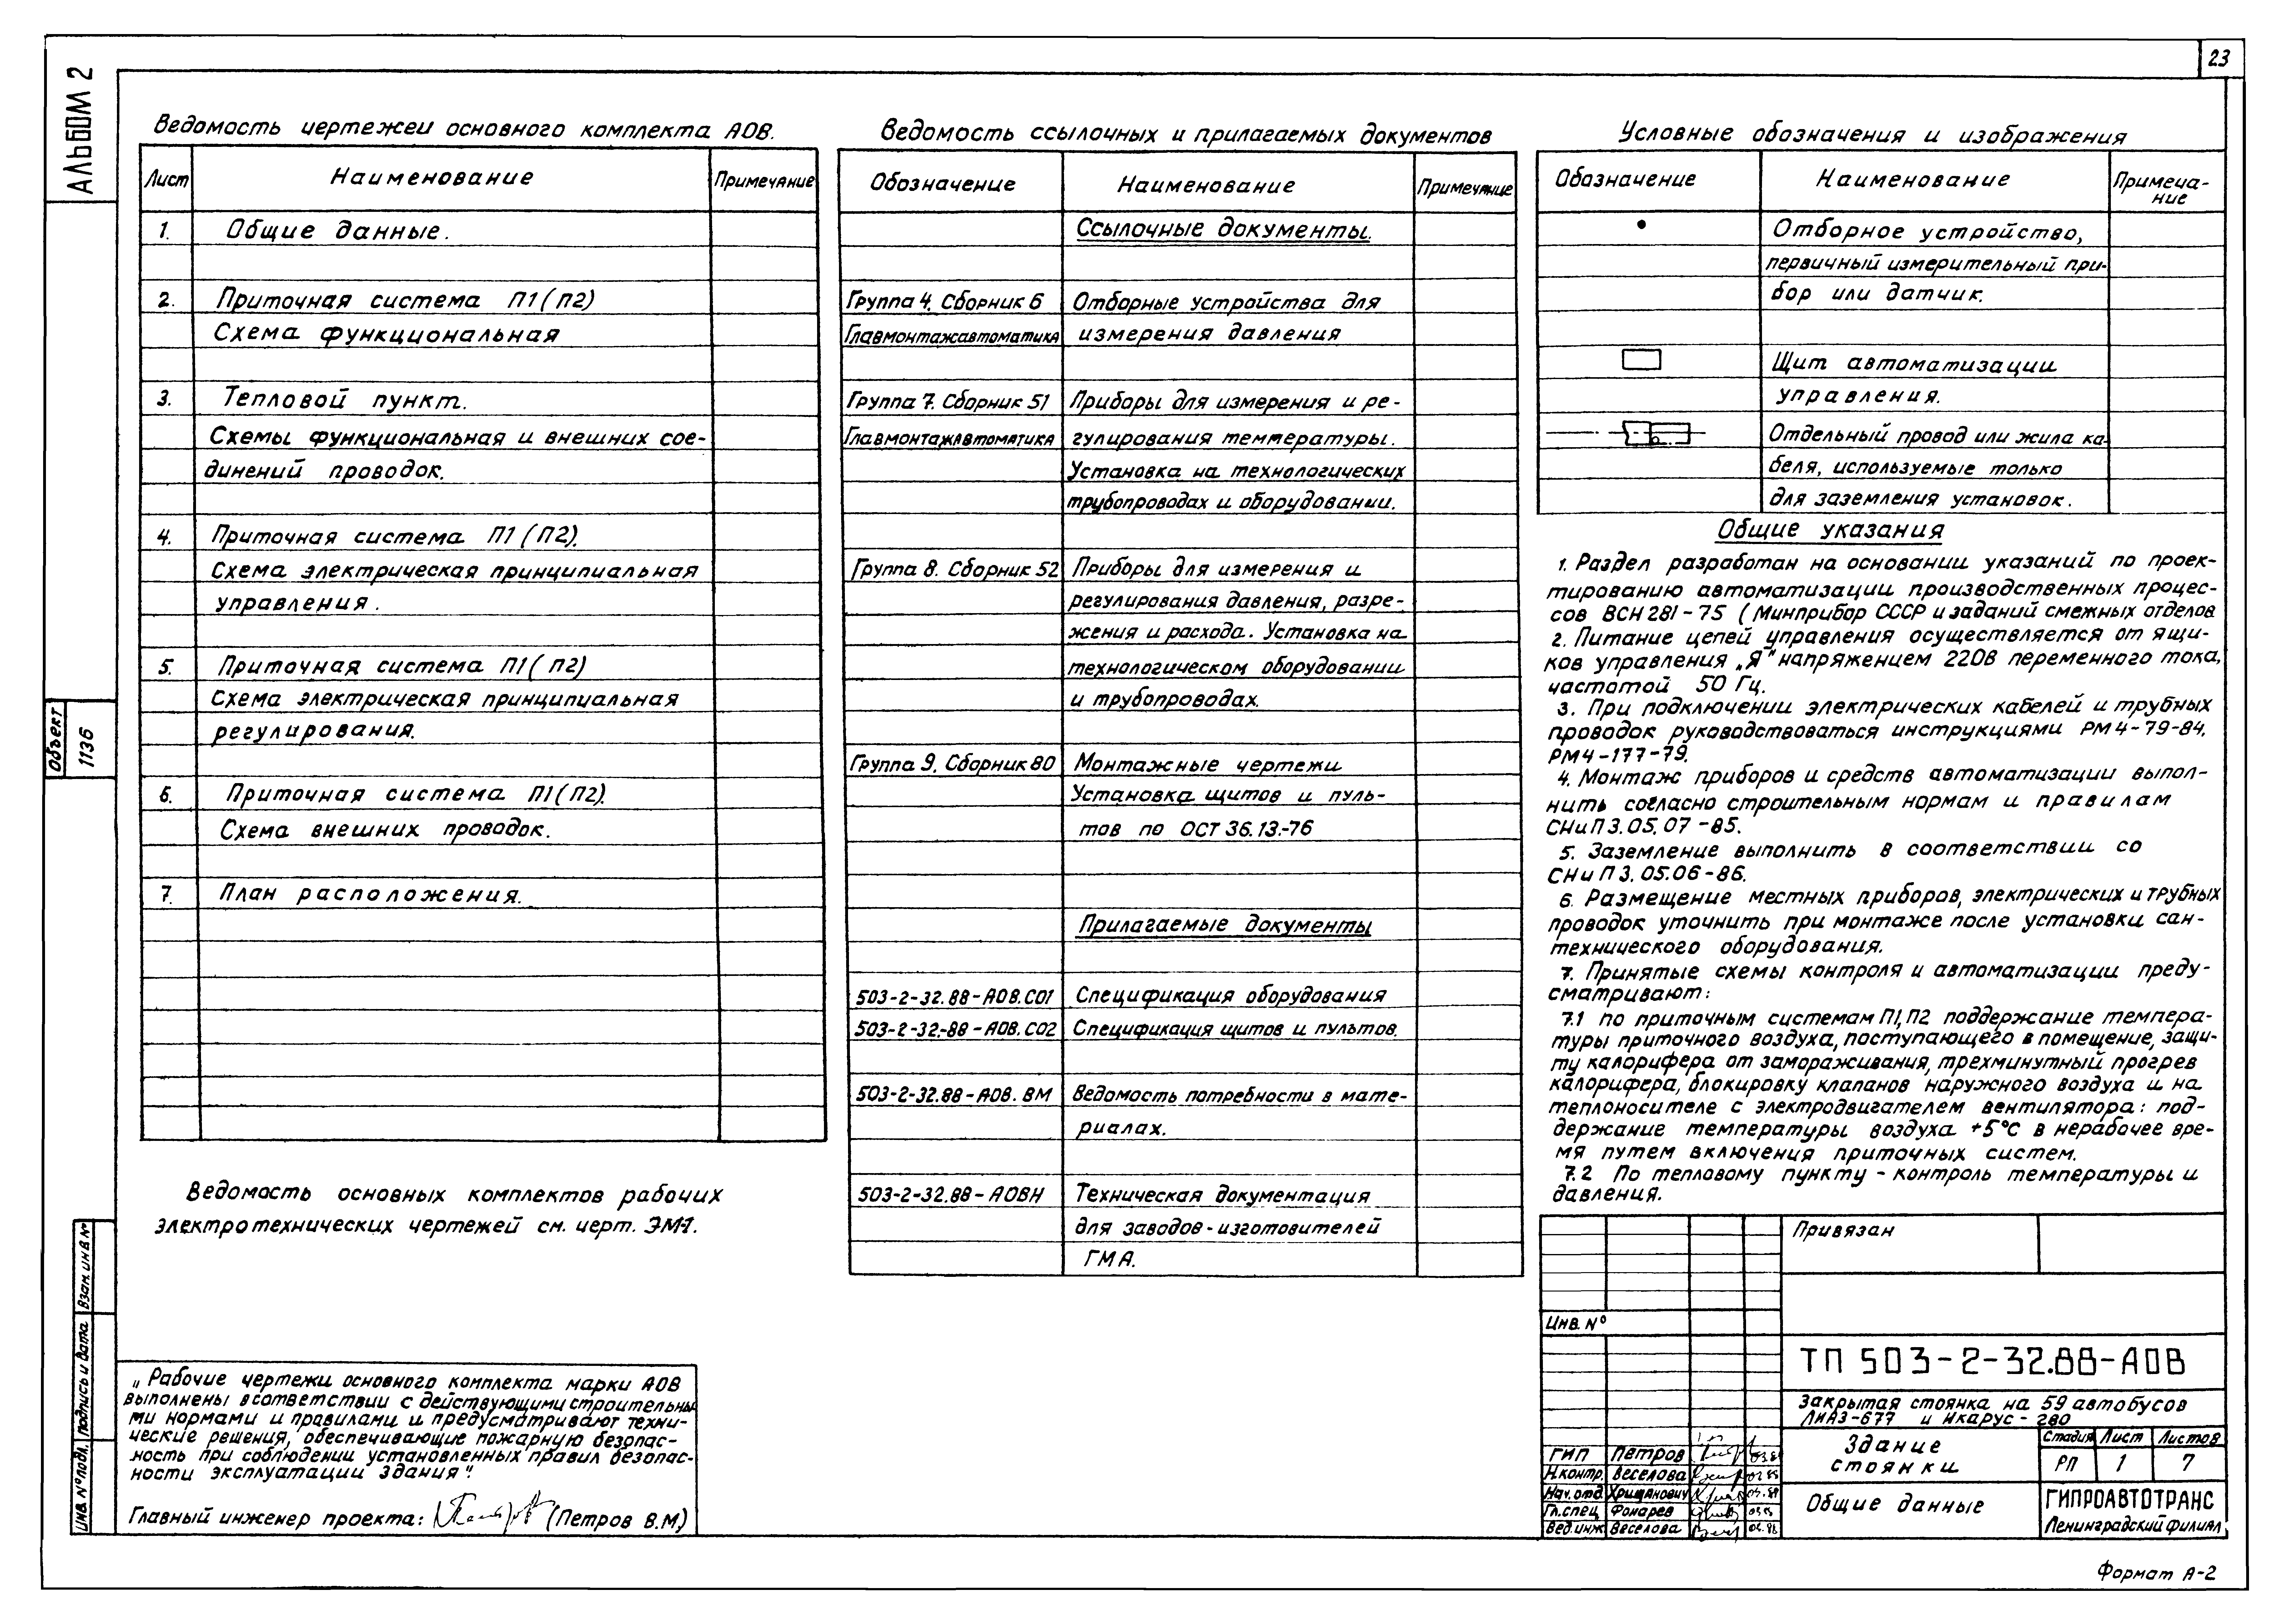 23
АЛЬБОМ 2
Ведомость чертежей основного комплекта АОВ.
Лист Наименование Примечание
1. Общие данные.
2. Приточная система П1 (П2)
Схема функциональная
3. Тепловой пункт.
Схемы функциональная и внешних сое-
динений проводок.
4. Приточная система П1 (П2).
Схема электрическая принципиальная
управления.
5. Приточная система П1 (П2)
Схема электрическая принципиальная
регулирования.
6. Приточная система П1 (П2).
Схема внешних проводок.
7. План расположения.
Ведомость основных комплектов рабочих
электротехнических чертежей см. черт. ЭМ-1.
„Рабочие чертежи основного комплекта марки АОВ
выполнены в соответствии с действующими строительны-
ми нормами и правилами и предусматривают техни-
ческие решения, обеспечивающие пожарную безопас-
ность при соблюдении установленных правил безопас-
ности эксплуатации здания".
Главный инженер проекта: (Петров В.М.)
Ведомость ссылочных и прилагаемых документов
Обозначение Наименование Примечание
Ссылочные документы.
Группа 4. Сборник 6 Отборные устройства для
Главмонтажавтоматика измерения давления
Группа 7. Сборник 51 Приборы для измерения и ре-
Главмонтажавтоматика гулирования температуры.
Установка на технологических
трубопроводах и оборудовании.
Группа 8. Сборник 52 Приборы для измерения и
регулирования давления, разре-
жения и расхода. Установка на
технологическом оборудовании
и трубопроводах.
Группа 9. Сборник 80 Монтажные чертежи
Установка щитов и пуль-
тов по ОСТ 36.13.-76
Прилагаемые документы
503-2-32.88-АОВ.С01 Спецификация оборудования
503-2-32-88-АОВ.С02 Спецификация щитов и пультов.
503-2-32.88-АОВ.ВМ Ведомость потребности в мате-
риалах.
503-2-32.88-АОВН Техническая документация
для заводов-изготовителей
ГМА.
Условные обозначения и изображения
Обозначение Наименование Примеча-
ние
Отборное устройство,
первичный измерительный при-
бор или датчик.
Щит автоматизации
управления.
Отдельный провод или жила ка-
беля, используемые только
для заземления установок.
Общие указания
1. Раздел разработан на основании указаний по проек-
тированию автоматизации производственных процес-
сов ВСН 281-75 (Минприбор СССР и заданий смежных отделов
2. Питание цепей управления осуществляется от ящи-
ков управления „Я" напряжением 220В переменного тока,
частотой 50 Гц.
3. При подключении электрических кабелей и трубных
проводок руководствоваться инструкциями РМ4-79-84,
РМ4-177-79.
4. Монтаж приборов и средств автоматизации выпол-
нить согласно строительным нормам и правилам
СНиП 3.05.07-85.
5. Заземление выполнить в соответствии со
СНиП 3.05.06-86.
6. Размещение местных приборов, электрических и трубных
проводок уточнить при монтаже после установки сан-
технического оборудования.
7. Принятые схемы контроля и автоматизации преду-
сматривают:
7.1 по приточным системам П1, П2 поддержание темпера-
туры приточного воздуха, поступающего в помещение, защи-
ту калорифера от замораживания, трехминутный прогрев
калорифера, блокировку клапанов наружного воздуха и на
теплоносителе с электродвигателем вентилятора: под-
держание температуры воздуха +5°С в нерабочее вре-
мя путем включения приточных систем.
7.2 По тепловому пункту - контроль температуры и
давления.
Привязан
Инв. №
ТП 503-2-32.88-АОВ
Закрытая стоянка на 59 автобусов
ЛиАЗ-677 и Икарус-280
Здание
стоянки
Стадия Лист Листов
РП 1 7
Общие данные
ГИПРОАВТОТРАНС
Ленинградский филиал
ГИП Петров
Н.контр. Веселова
Нач. отд. Хришанович
Гл. спец Фонарев
Вед. инж Веселова
Объект 1136
Взам. инв №
Подпись и дата
Инв. № подл.
Формат А-2